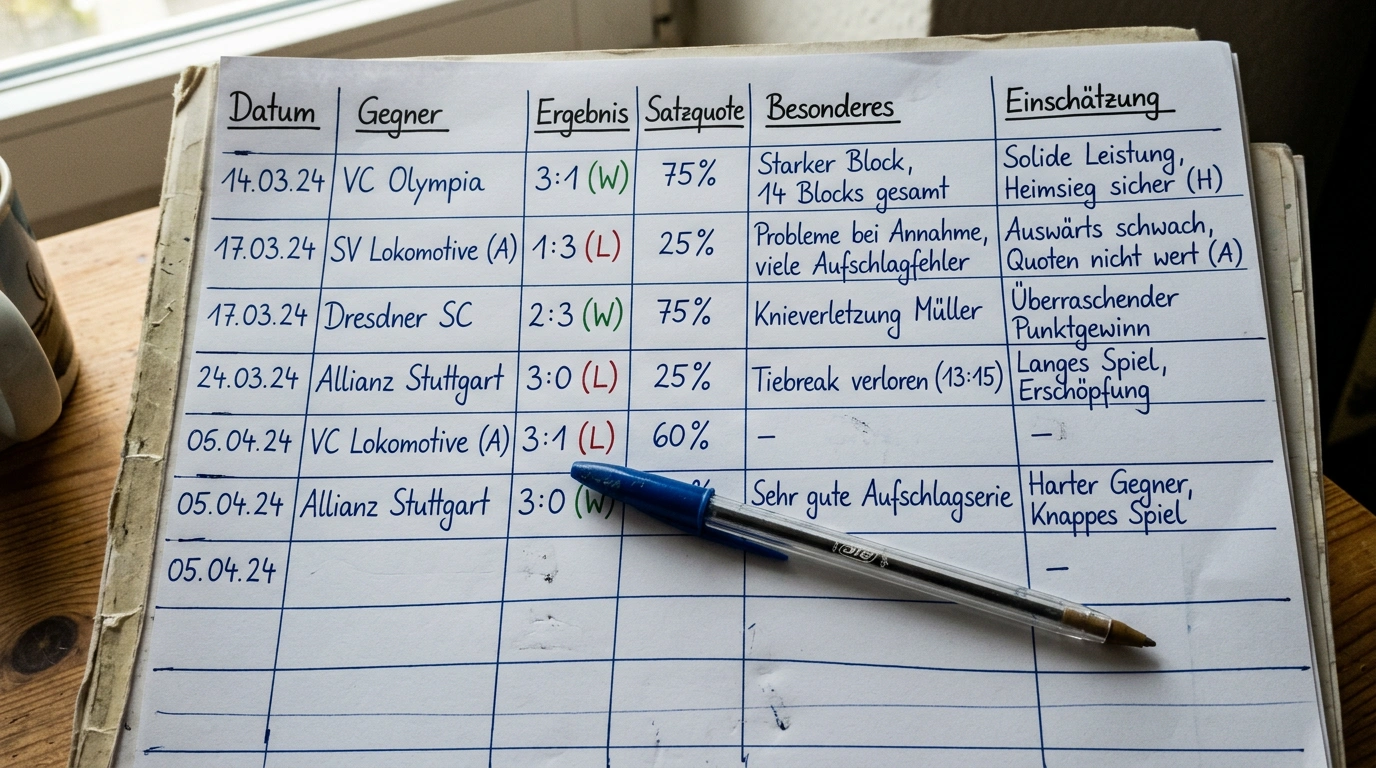 Datum Gegner Ergebnis Satzquote Besonderes Einschätzung
14.03.24 VC Olympia 3:1 (W) 75% Starker Block, Solide Leistung,
14 Blocks gesamt Heimsieg sicher (H)
17.03.24 SV Lokomotive (A) 1:3 (L) 25% Probleme bei Annahme, Auswärts schwach,
viele Aufschlagfehler Quoten nicht wert (A)
17.03.24 Dresdner SC 2:3 (W) 75% Knieverletzung Müller Überraschender
Punktgewinn
24.03.24 Allianz Stuttgart 3:0 (L) 25% Tiebreak verloren (13:15) Langes Spiel,
Erschöpfung
05.04.24 VC Lokomotive (A) 3:1 (L) 60% – –
05.04.24 Allianz Stuttgart 3:0 (W) % Sehr gute Aufschlagserie Harter Gegner,
Knappes Spiel
05.04.24 –
BIC